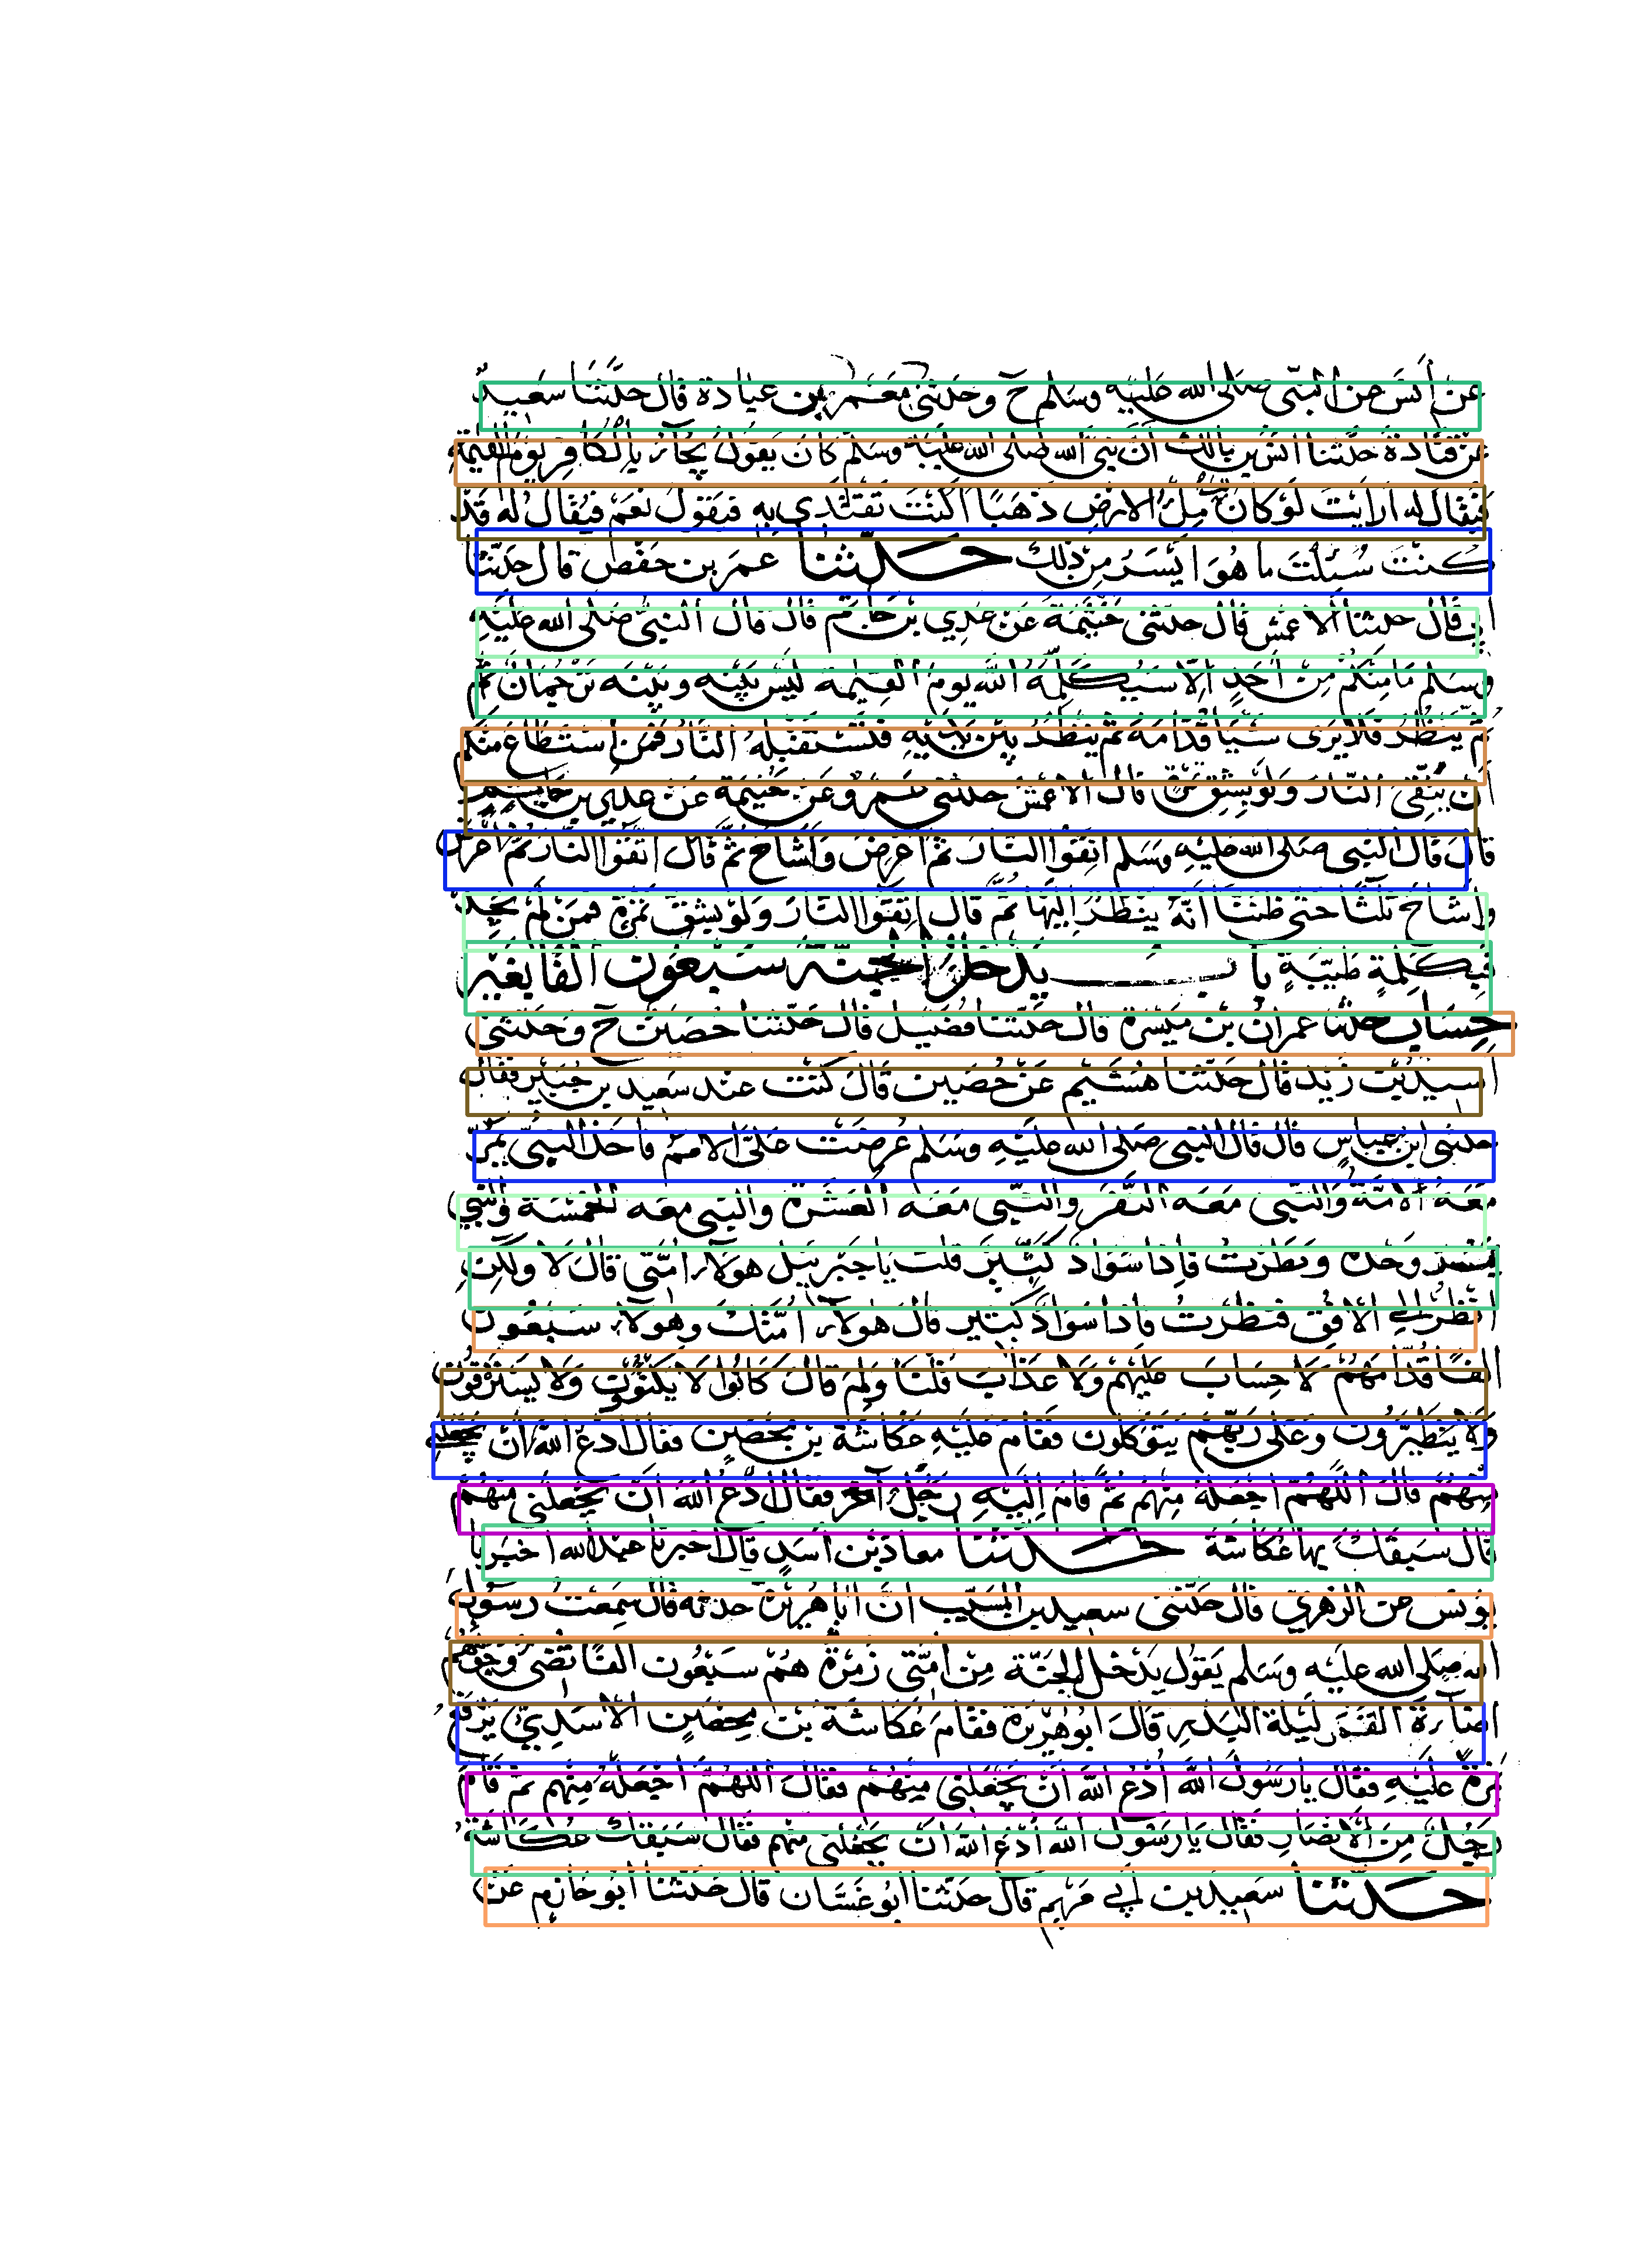 عن أنس عن النبي صلى الله عليه وسلم ح وحدثني معمر بن عبادة قال حدثنا سعيد
عن قتادة حدثنا انس بن مالك أن نبي الله صلى الله عليه وسلم كان يقول يجاء بالكافر يوم القيمة
فيقال له أرأيت لو كان لك ملء الارض ذهبا أكنت تفتدي به فيقول نعم فيقال له قد
كنت سئلت ما هو ايسر من ذلك حدثنا عمر بن حفص قال حدثنا
ابي قال حدثنا الاعمش قال حدثني خيثمة عن عدي بن حاتم قال قال النبي صلى الله عليه
وسلم ما منكم من أحد الا سيكلمه الله يوم القيمة ليس بينه وبينه ترجمان ثم
ثم ينظر فلا يرى شيا قدامه ثم ينظر بين يديه فتستقبله النار فمن استطاع منكم
أن يتقي النار ولو بشق تمرة قال الاعمش حدثني عمرو عن خيثمة عن عدي بن حاتم
قال قال النبي صلى الله عليه وسلم اتقوا النار ثم اعرض واشاح ثم قال اتقوا النار ثم اعرض
واشاح ثلثا حتى ظننا أنه ينظر إليها ثم قال اتقوا النار ولو بشق تمرة فمن لم يجد
فبكلمة طيبة باب يدخل الجنة سبعون الفا بغير
حساب حدثنا عمران بن ميسرة قال حدثنا فضيل قال حدثنا حصين ح وحدثني
اسيد بن زيد قال حدثنا هشيم عن حصين قال كنت عند سعيد بن جبير فقال
حدثني ابن عباس قال قال النبي صلى الله عليه وسلم عرضت على الامم فاخذ النبي يمر
معه الامة والنبي معه النفر والنبي معه العشرة والنبي معه الخمسة والنبي
يمر وحده ونظرت فاذا سواد كثير قلت يا جبريل هولاء امتي قال لا ولكن
انظر الى الافق فنظرت فاذا سواد كثير قال هولاء امتك وهولاء سبعون
الفا قدامهم لا حساب عليهم ولا عذاب قلت ولم قال كانوا لا يكتوون ولا يسترقون
ولا يتطيرون وعلى ربهم يتوكلون فقام عليه عكاشة بن محصن فقال ادع الله ان يجعلني
منهم قال اللهم اجعله منهم ثم قام إليه رجل آخر فقال ادع الله ان يجعلني منهم
قال سبقك بها عكاشة حدثنا معاذ بن اسد قال اخبرنا عبد الله اخبرنا
يونس عن الزهري قال حدثني سعيد بن المسيب ان ابا هريرة حدثه قال سمعت رسول
الله صلى الله عليه وسلم يقول يدخل الجنة من امتي زمرة هم سبعون الفا تضيء وجوههم
اضاءة القمر ليلة البدر قال ابو هريرة فقام عكاشة بن محصن الاسدي يرفع
نمرة عليه فقال يا رسول الله ادع الله ان يجعلني منهم فقال اللهم اجعله منهم ثم قام
رجل من الانصار فقال يا رسول الله ادع الله ان يجعلني منهم فقال سبقك عكاشة
حدثنا سعيد بن ابي مريم قال حدثنا ابو غسان قال حدثنا ابو حازم عن